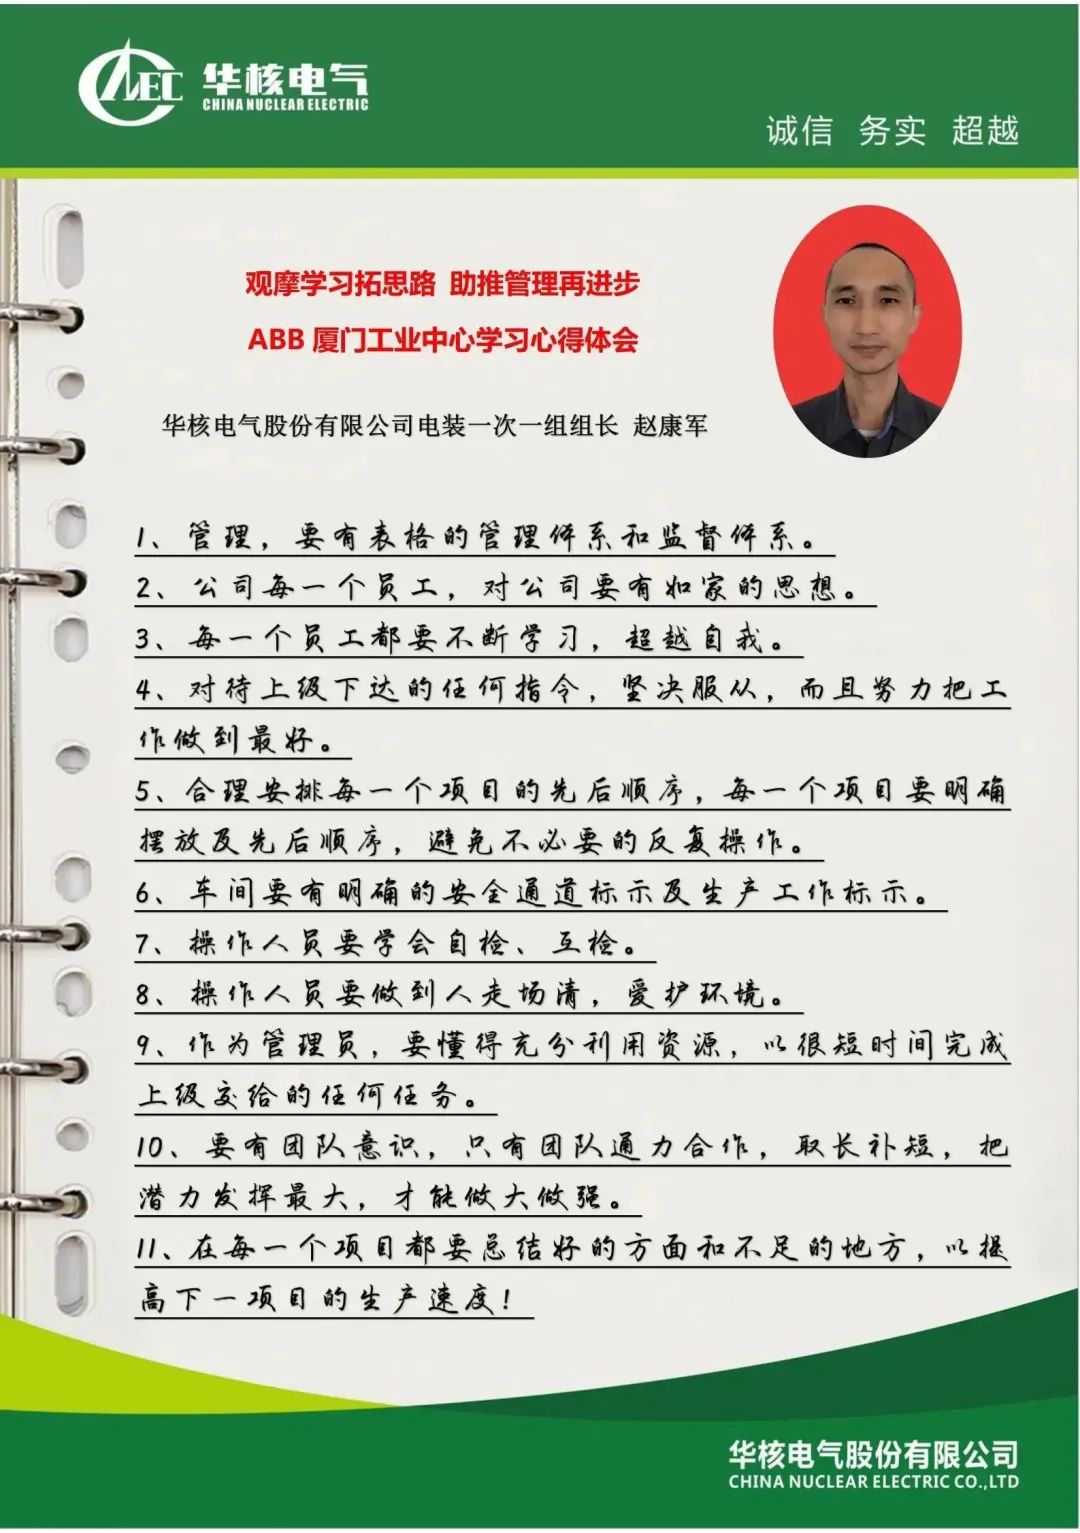 CNEC 华核电气
CHINA NUCLEAR ELECTRIC
诚信 务实 超越
观摩学习拓思路 助推管理再进步
ABB 厦门工业中心学习心得体会
华核电气股份有限公司电装一次一组组长 赵康军
1、管理，要有表格的管理体系和监督体系。
2、公司每一个员工，对公司要有如家的思想。
3、每一个员工都要不断学习，超越自我。
4、对待上级下达的任何指令，坚决服从，而且努力把工
作做到最好。
5、合理安排每一个项目的先后顺序，每一个项目要明确
摆放及先后顺序，避免不必要的反复操作。
6、车间要有明确的安全通道标示及生产工作标示。
7、操作人员要学会自检、互检。
8、操作人员要做到人走场清，爱护环境。
9、作为管理员，要懂得充分利用资源，以很短时间完成
上级交给的任何任务。
10、要有团队意识，只有团队通力合作，取长补短，把
潜力发挥最大，才能做大做强。
11、在每一个项目都要总结好的方面和不足的地方，以提
高下一项目的生产速度！
华核电气股份有限公司
CHINA NUCLEAR ELECTRIC CO.,LTD